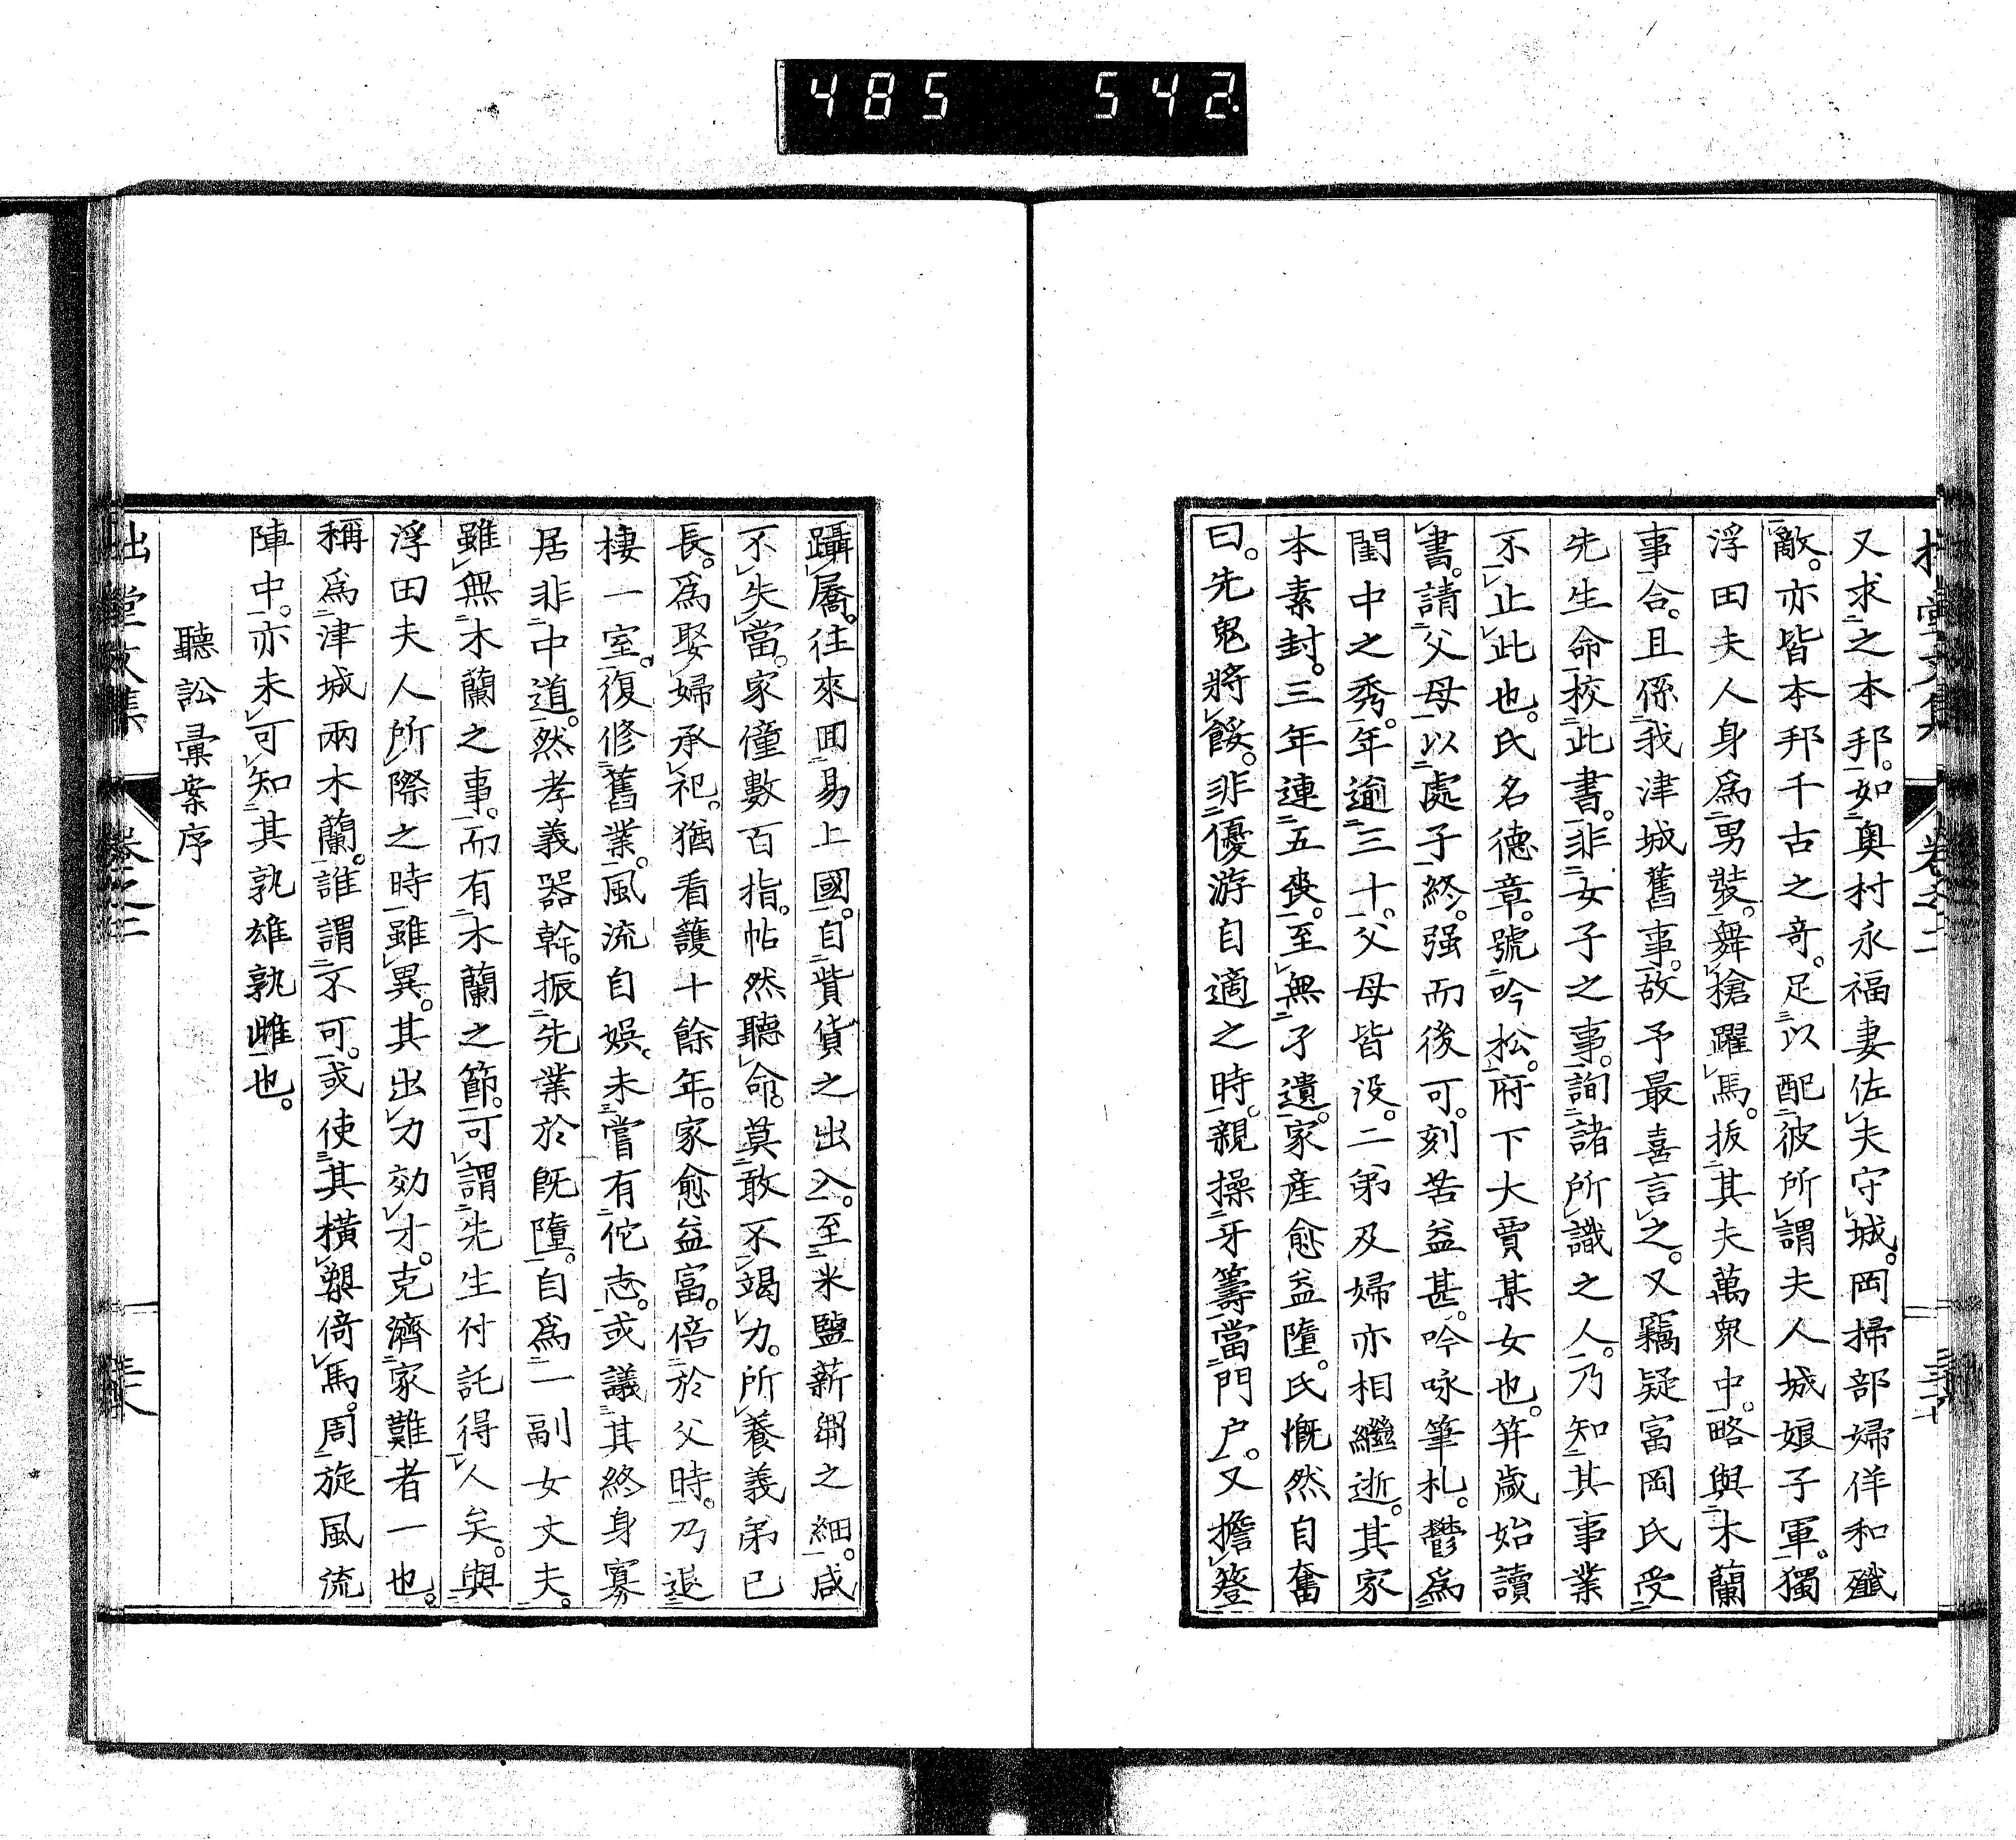 485 542
拙堂文集 卷之二
又求之本邦。如奥村永福妻佐夫守城。岡掃部婦佯和殲
敵。亦皆本邦千古之奇。足以配彼所謂夫人城娘子軍。獨
浮田夫人身爲男裝。舞槍躍馬。扳其夫萬衆中。略與木蘭
事合。且係我津城舊事。故予最喜言之。又竊疑富岡氏受
先生命校此書。非女子之事。詢諸所識之人。乃知其事業
不止此也。氏名德章。號吟松。府下大賈某女也。笄歲始讀
書。請父母以處子終。强而後可。刻苦益甚。吟咏筆札。鬱爲
閨中之秀。年逾三十。父母皆没。二弟及婦亦相繼逝。其家
本素封。三年連五喪。至無孑遺。家産愈益墮。氏慨然自奮
曰。先鬼將餒。非優游自適之時。親操牙籌當門户。又擔簦
躡屩。往來回易上國。自貲貨之出入。至米鹽薪粥之細。咸
不失當。家僮數百指。帖然聽命。莫敢不竭力。所養義弟已
長。爲娶婦承祀。猶看護十餘年。家愈益富。倍於父時。乃退
棲一室。復修舊業。風流自娛。未嘗有佗志。或議其終身寡
居非中道。然孝義器幹。振先業於既墮。自爲一副女丈夫。
雖無木蘭之事。而有木蘭之節。可謂先生付託得人矣。與
浮田夫人所際之時雖異。其出力効才。克濟家難者一也。
稱爲津城兩木蘭。誰謂不可。或使其橫槊倚馬。周旋風流
陣中。亦未可知其孰雄孰雌也。
聽訟彙案序
拙堂文集 卷之二